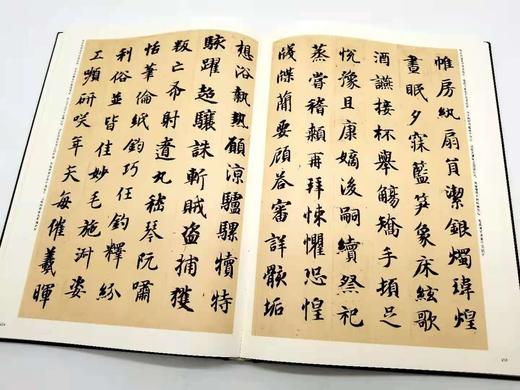 帷房紈扇員潔銀燭瑋煌
晝眠夕寐藍笋象床絃歌
酒讌接杯舉觴矯手頓足
悅豫且康嫡後嗣續祭祀
蒸嘗稽顙再拜悚懼恐惶
牋牒簡要顧荅審詳骸垢
想浴執熱願涼驢騾犢特
駭躍超驤誅斬賊盜捕獲
叛亡布射遼丸嵇琴阮嘯
恬筆倫紙鈞巧任釣釋紛
利俗並皆佳妙毛施淑姿
工嚬研咲年矢每催羲暉